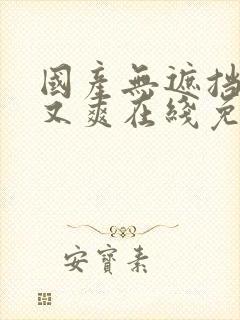 國產無遮挡
又爽在綫免
安寶素